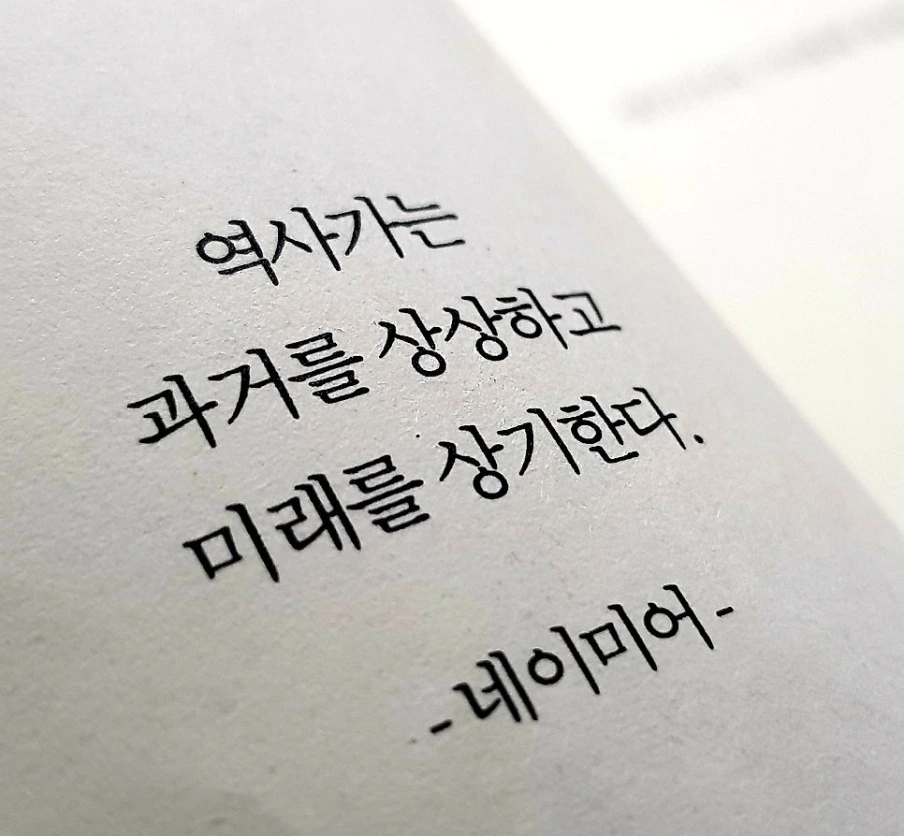 역사가는
과거를 상상하고
미래를 상기한다.
-네이미어-